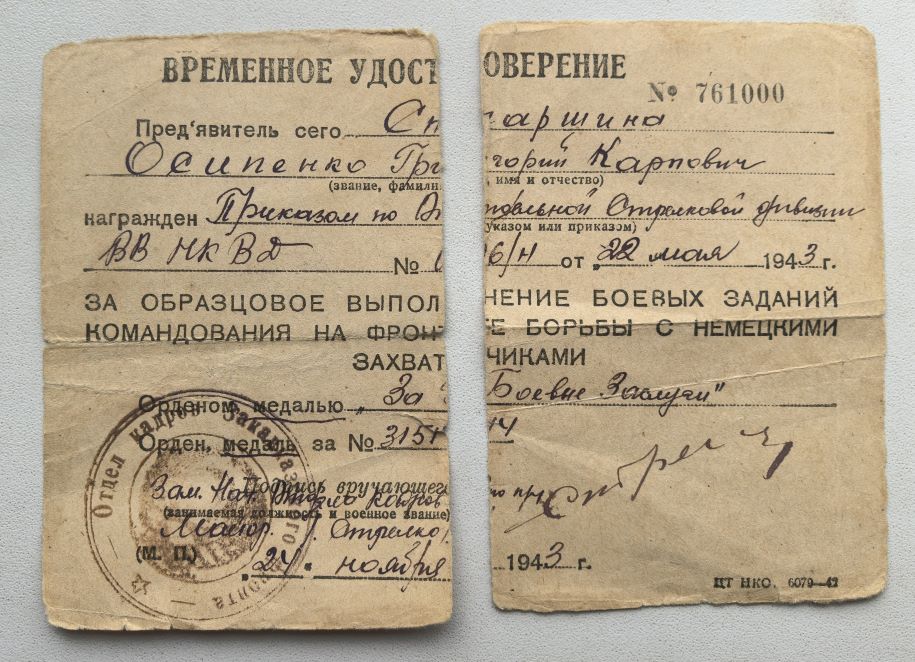 ВРЕМЕННОЕ УДОСТОВЕРЕНИЕ
№ 761000
Пред'явитель сего Старшина
Осипенко Григорий Карпович
(звание, фамилия, имя и отчество)
награжден Приказом по Отдельной Стрелковой дивизии
(указом или приказом)
ВВ НКВД № 06/н от "22 мая 1943 г.
ЗА ОБРАЗЦОВОЕ ВЫПОЛНЕНИЕ БОЕВЫХ ЗАДАНИЙ
КОМАНДОВАНИЯ НА ФРОНТЕ БОРЬБЫ С НЕМЕЦКИМИ
ЗАХВАТЧИКАМИ
Орденом, медалью „За Боевые Заслуги"
Орден, медаль за №
Подпись вручающего
Зам. Нач. Отдела кадров
(занимаемая должность и военное звание)
Майор Стрелко
(М. П.) „24" ноября 1943 г.
Отдел кадров Закавказского фронта
ЦТ НКО. 6079—42